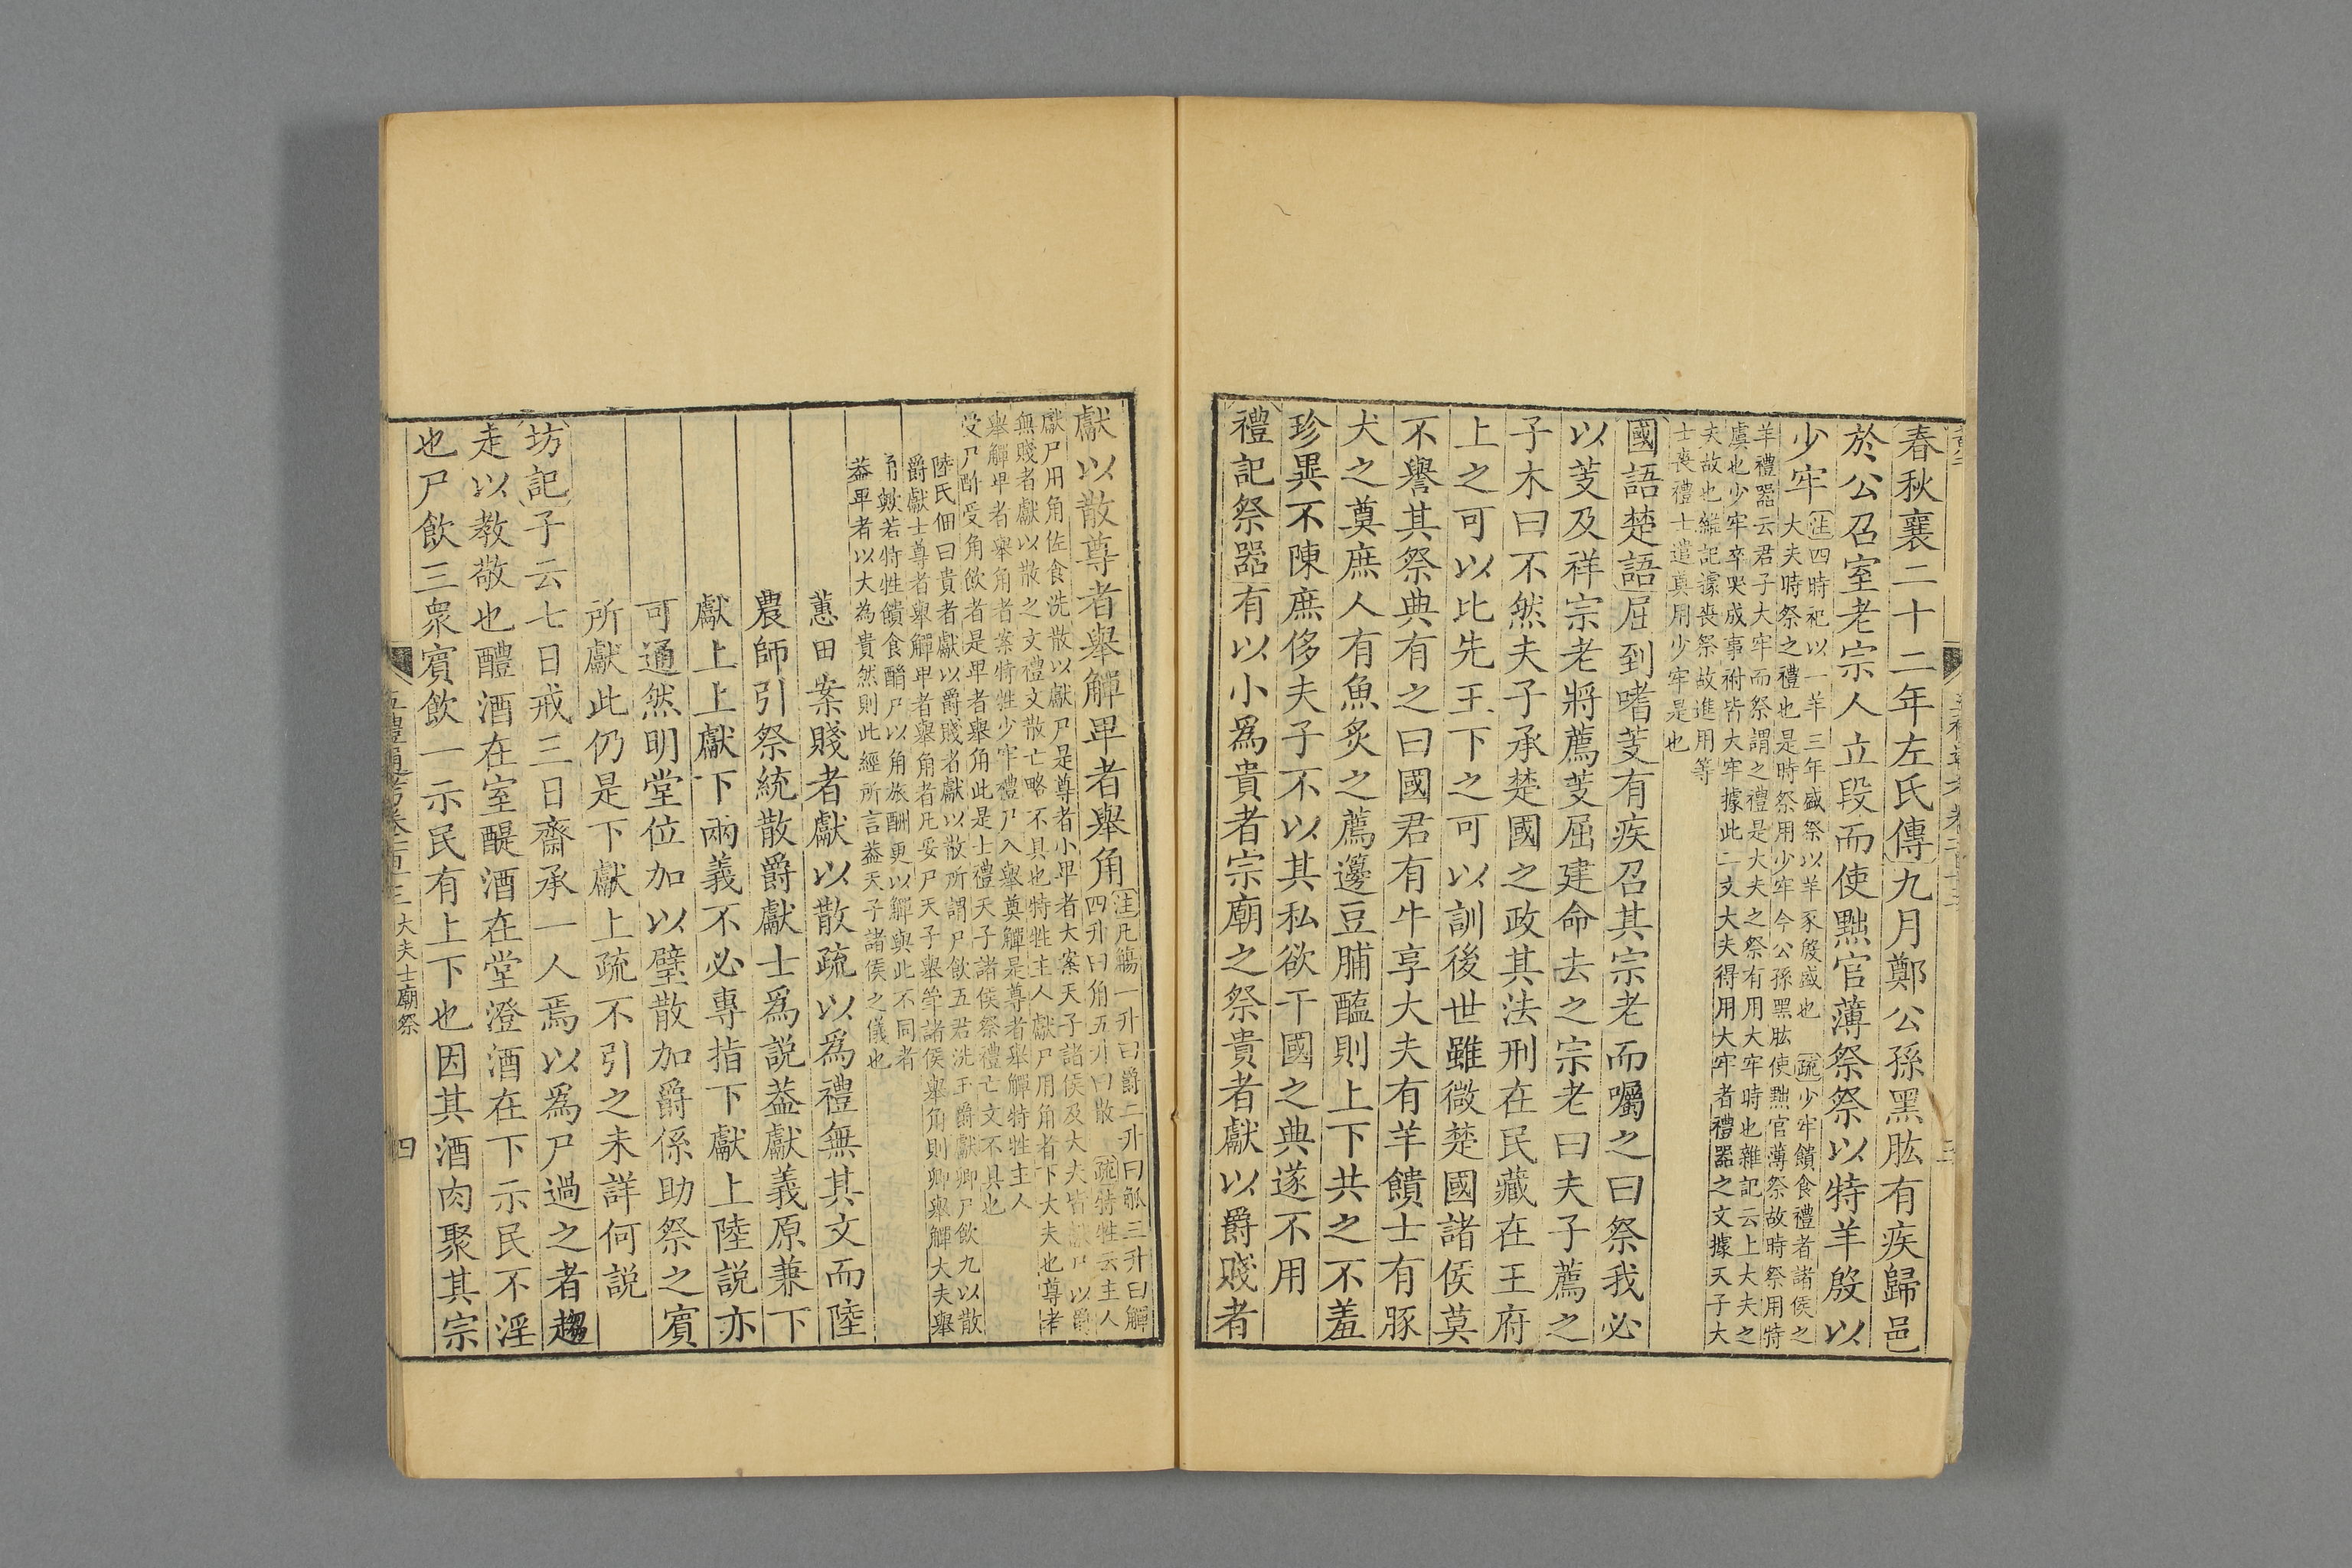 春秋襄二十二年左氏傳九月鄭公孫黑肱有疾歸邑
於公召室老宗人立段而使黜官薄祭祭以特羊殷以
少牢
注四時祀以一羊三年盛祭以羊豕殷盛也 疏少牢饋食禮者諸侯之
大夫時祭之禮也是時祭用少牢今公孫黑肱使黜官薄祭故時祭用特
羊禮器云君子大牢而祭謂之禮是大夫之祭有用大牢時也雜記云上大夫之
虞也少牢卒哭成事祔皆大牢據此二文大夫得用大牢者禮器之文據天子大
夫故也雜記據喪祭故進用等
士喪禮士遣奠用少牢是也
國語楚語屈到嗜芰有疾召其宗老而囑之曰祭我必
以芰及祥宗老將薦芰屈建命去之宗老曰夫子薦之
子木曰不然夫子承楚國之政其法刑在民藏在王府
上之可以比先王下之可以訓後世雖微楚國諸侯莫
不譽其祭典有之曰國君有牛享大夫有羊饋士有豚
犬之奠庶人有魚炙之薦籩豆脯醢則上下共之不羞
珍異不陳庶侈夫子不以其私欲干國之典遂不用
禮記祭器有以小爲貴者宗廟之祭貴者獻以爵賤者
獻以散尊者舉觶卑者舉角
注凡觴一升曰爵二升曰觚三升曰觶
四升曰角五升曰散 疏特牲云主人
獻尸用角佐食洗散以獻尸是尊者小卑者大案天子諸侯及大夫皆獻尸以爵
無賤者獻以散之文禮文散亡略不具也特牲主人獻尸用角者下大夫也尊者
舉觶卑者舉角者案特牲少牢禮尸入舉奠觶是尊者舉觶特牲主人
受尸酢受角飲者是卑者舉角此是士禮天子諸侯祭禮亡文不具也
陸氏佃曰貴者獻以爵賤者獻以散所謂尸飲五君洗玉爵獻卿尸飲九以散
爵獻士尊者舉觶卑者舉角者凡妥尸天子舉斝諸侯舉角則卿舉觶大夫舉
角歟若特牲饋食酳尸以角旅酬更以觶與此不同者
蓋卑者以大為貴然則此經所言蓋天子諸侯之儀也
蕙田案賤者獻以散疏以爲禮無其文而陸
農師引祭統散爵獻士爲説葢獻義原兼下
獻上上獻下兩義不必專指下獻上陸説亦
可通然明堂位加以璧散加爵係助祭之賓
所獻此仍是下獻上疏不引之未詳何説
坊記子云七日戒三日齋承一人焉以爲尸過之者趨
走以教敬也醴酒在室醍酒在堂澄酒在下示民不淫
也尸飲三衆賓飲一示民有上下也因其酒肉聚其宗
五禮通考卷一百十三 大夫士廟祭 四